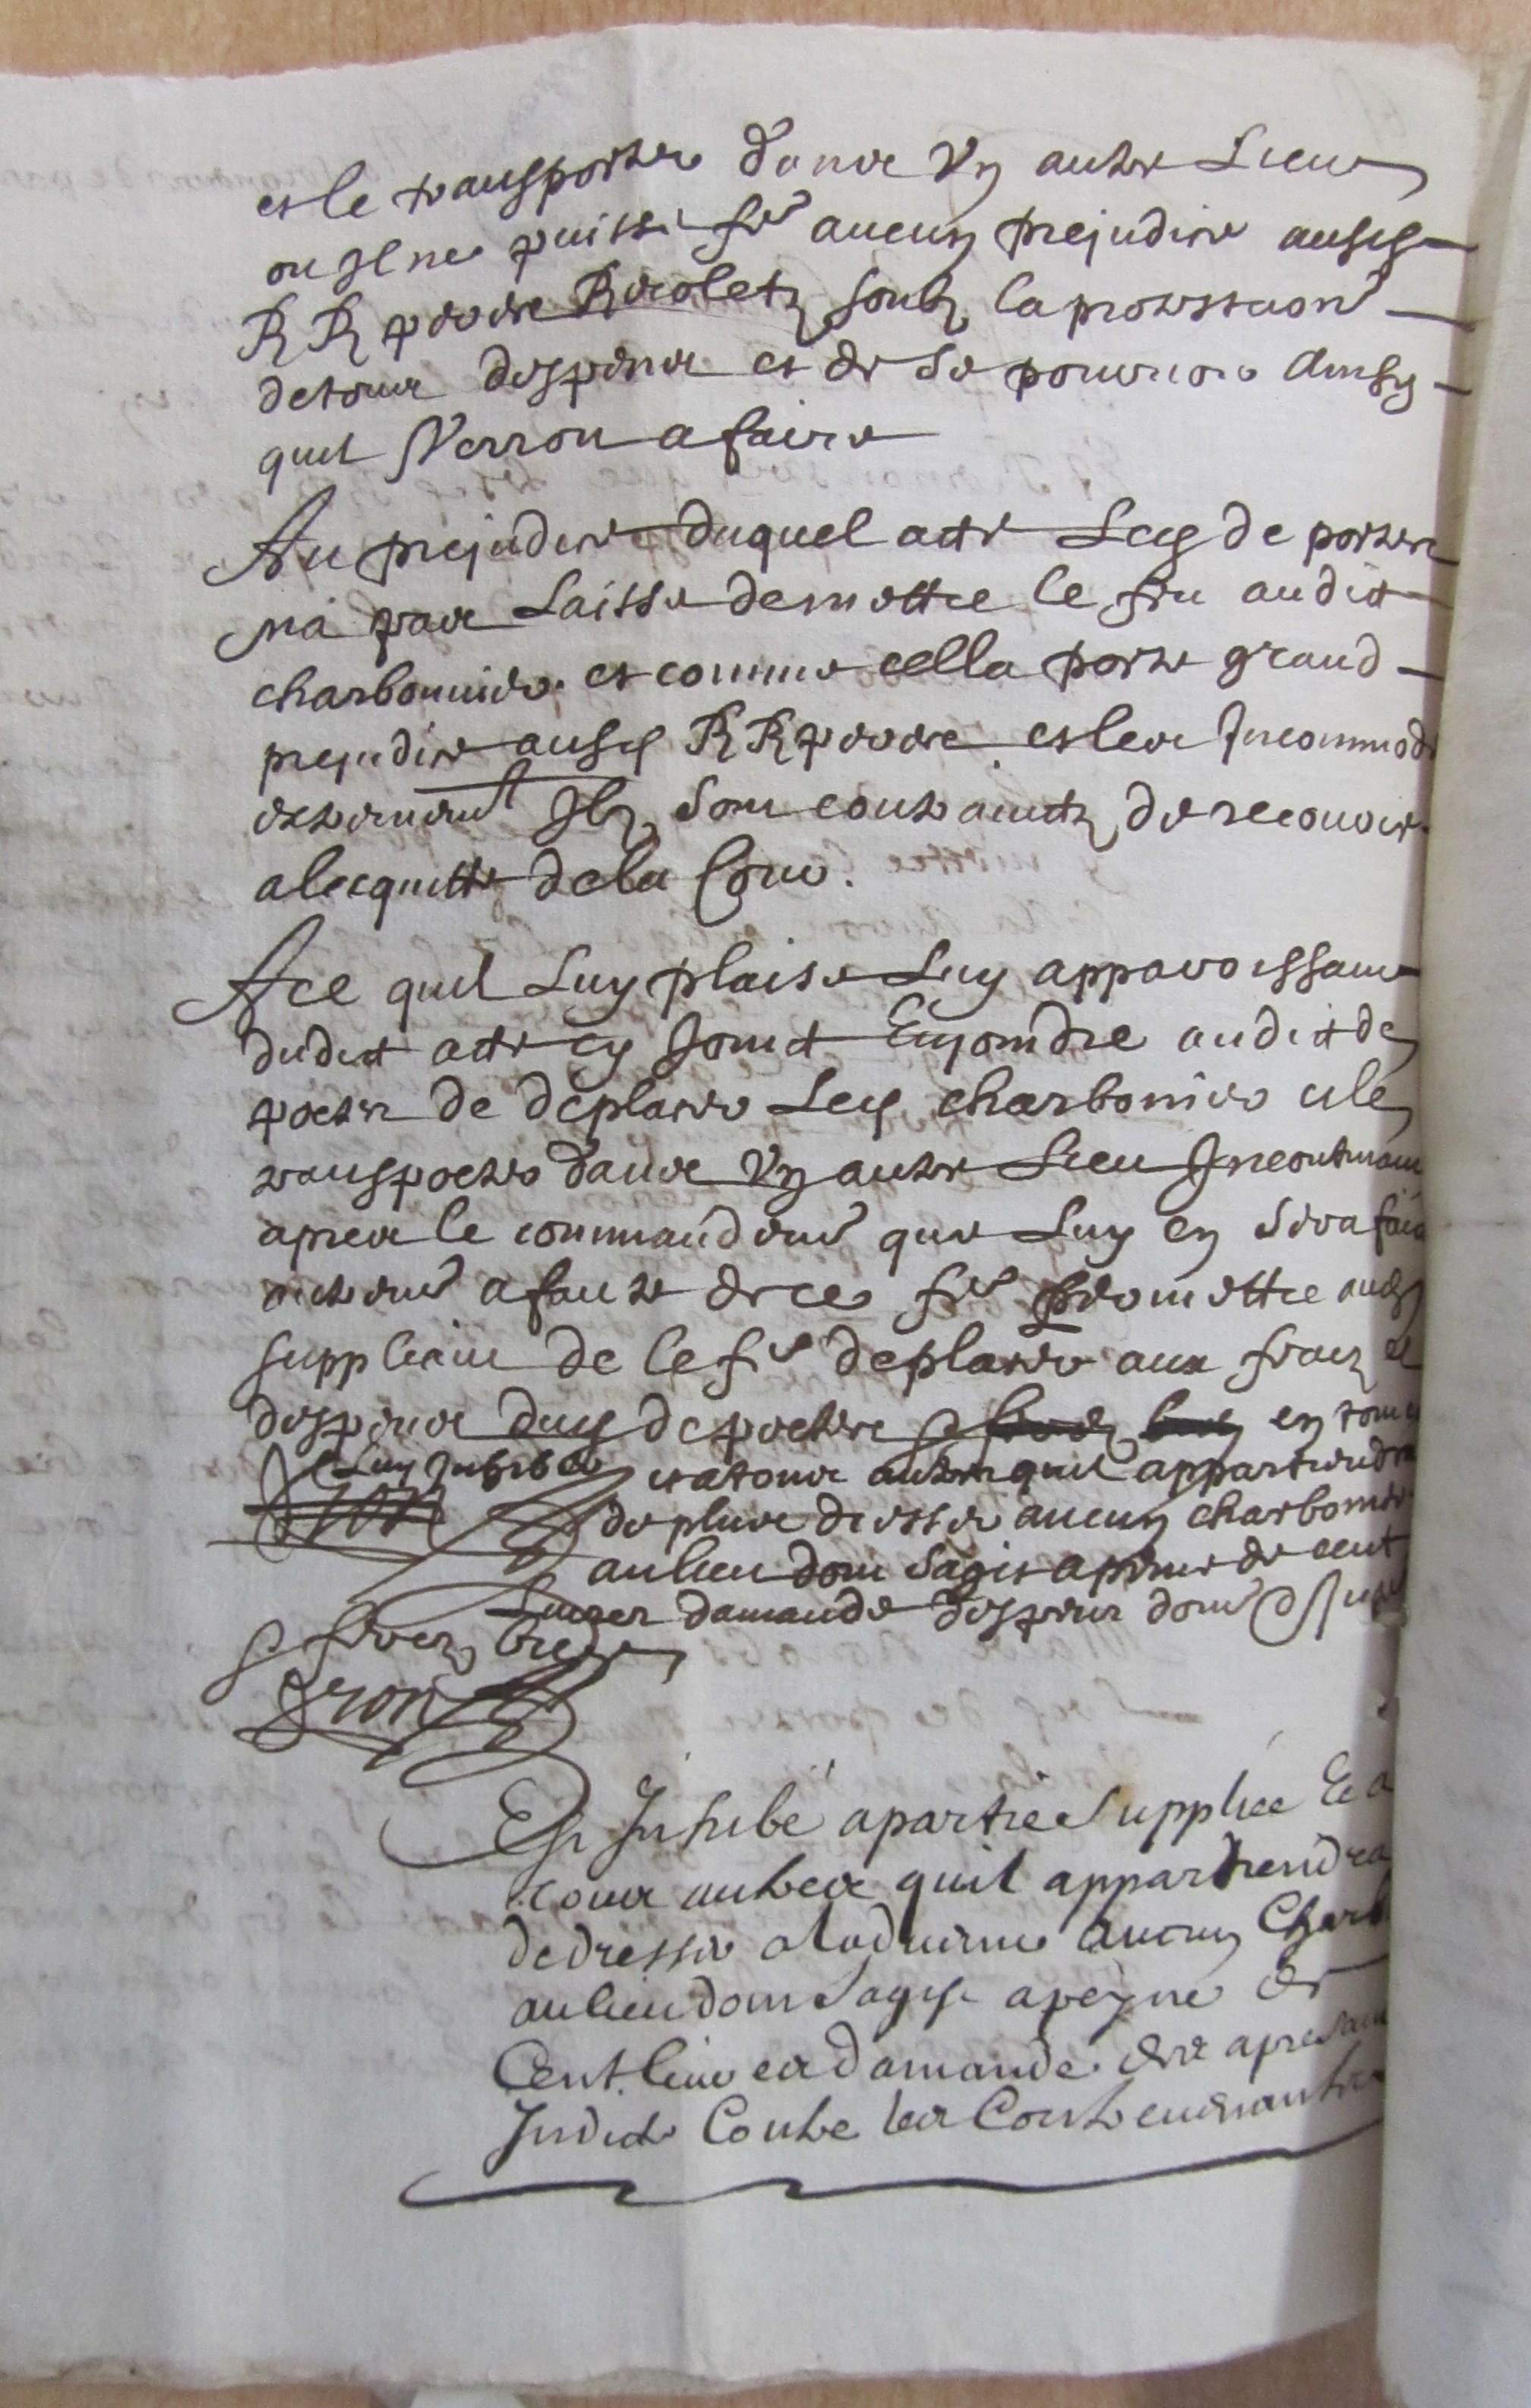 et le transporter dans un autre Lieu
ou Il ne puisse fre aucun prejudice ausds
RR peres Recoletz soubz la protestaon
de tous despens et de se pourvoir ainsy
quil Verron a faire
Au prejudice duquel acte Led de porter
na pas Laisse de mettre le feu audit
charbonnier et comme cella porte grand
prejudice ausd RR peres et les Incommode
extremement Ilz sont contrainctz de recouvir
a lecquitte de la Cour.
A ce quil Luy plaise Luy apparoissant
dudict acte cy joinct Enjoindre audit de
porter de deplacer Led charbonier et le
transporter dans un autre Lieu Incontinant
apres le commandemt que Luy en sera faict
autremt a faute de ce fre permettre aud
suppliant de le fre deplacer aux fraiz et
despens dud de porter en tout cas
Luy Inhiber et a tous autres quil appartiendra
de plus dresser aucun charbonier
au lieu dont sagit a peine de cent
Livres damande despens dom
feres bien
Gron
Est Inhibé a partie Suppliée Et a
tous autres quil appartiendra
de dresser a ladvenir aucun Charb
au lieu dont sagist a peyne de
Cent livres damande
Indict Contre les Contrevenants